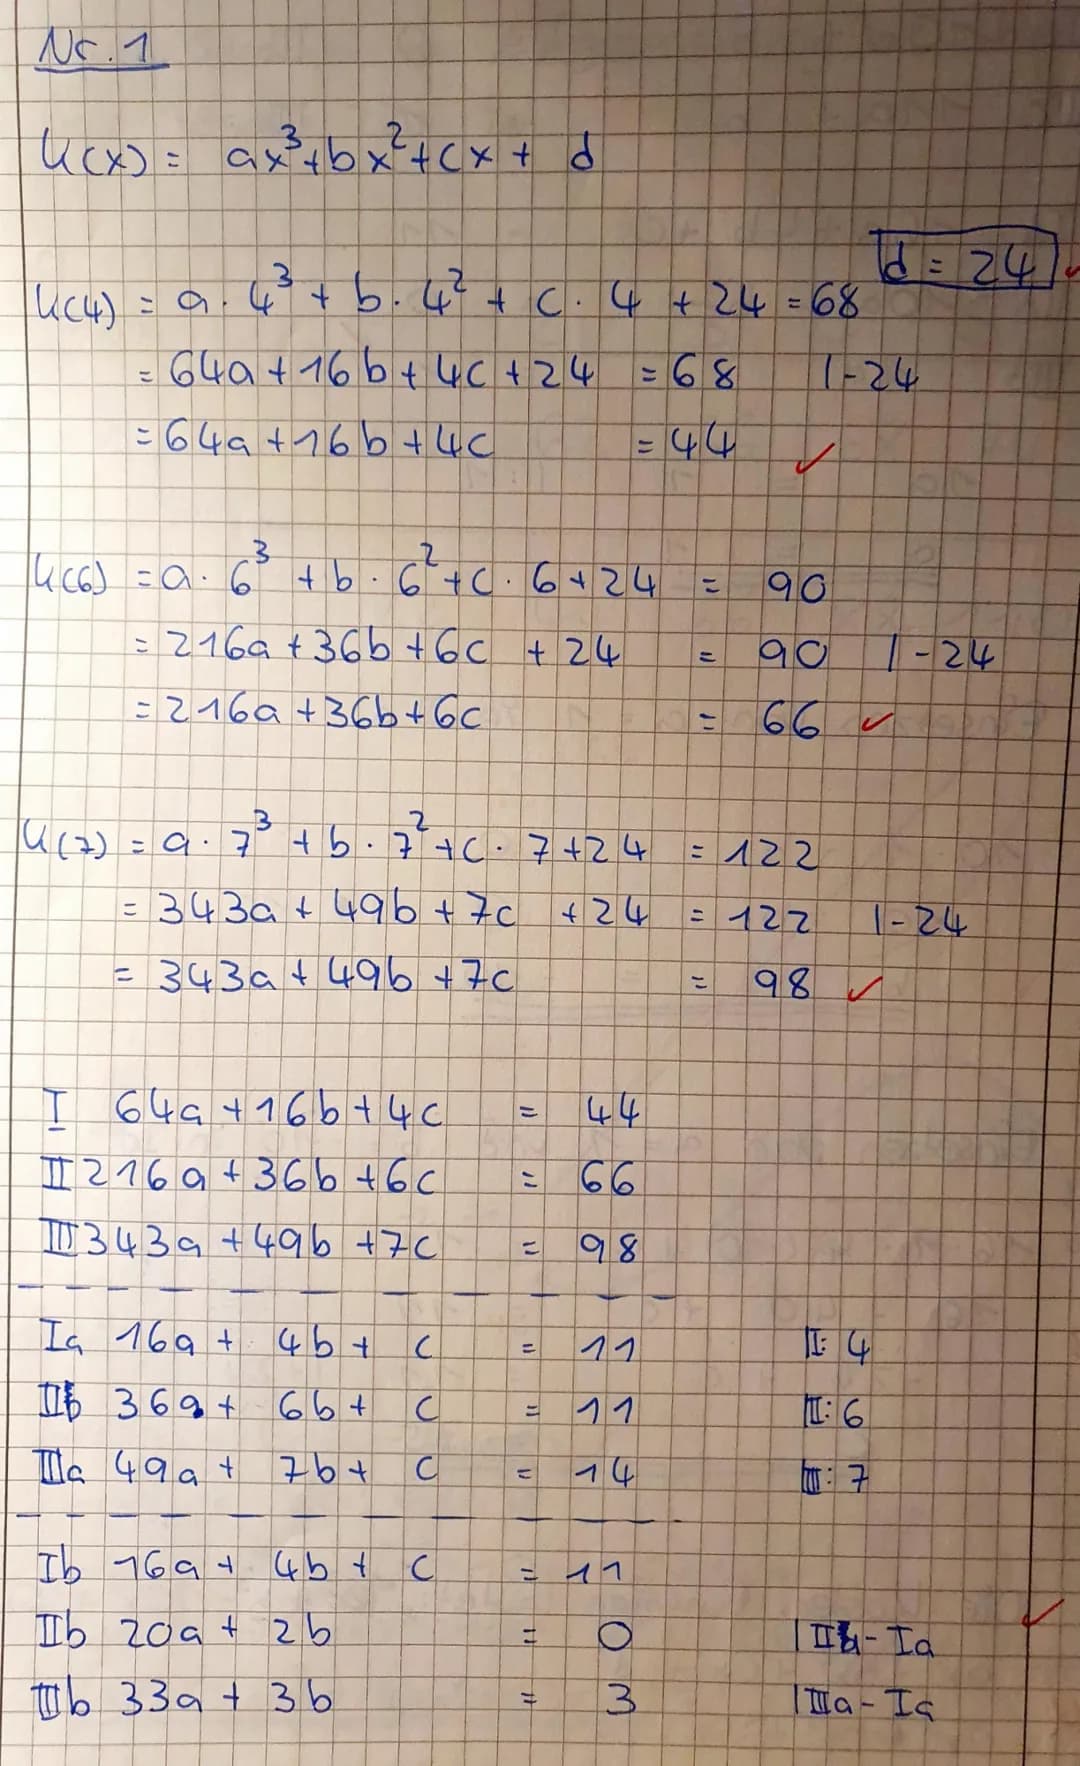 Nr. 1
K(x) = ax³+bx²+cx + d
d = 24
K(4) = a · 4³ + b · 4² + c · 4 + 24 = 68
= 64a + 16b + 4c + 24 = 68 |-24
= 64a + 16b + 4c = 44 ✓
K(6) = a · 6³ + b · 6² + c · 6 + 24 = 90
= 216a + 36b + 6c + 24 = 90 |-24
= 216a + 36b + 6c = 66 ✓
K(7) = a · 7³ + b · 7² + c · 7 + 24 = 122
= 343a + 49b + 7c + 24 = 122 |-24
= 343a + 49b + 7c = 98 ✓
I 64a + 16b + 4c = 44
II 216a + 36b + 6c = 66
III 343a + 49b + 7c = 98
Ia 16a + 4b + c = 11 I: 4
IIb 36a + 6b + c = 11 II: 6
IIIa 49a + 7b + c = 14 III: 7
Ib 16a + 4b + c = 11
IIb 20a + 2b = 0 | IIa - Ia ✓
IIIb 33a + 3b = 3 | IIIa - Ia